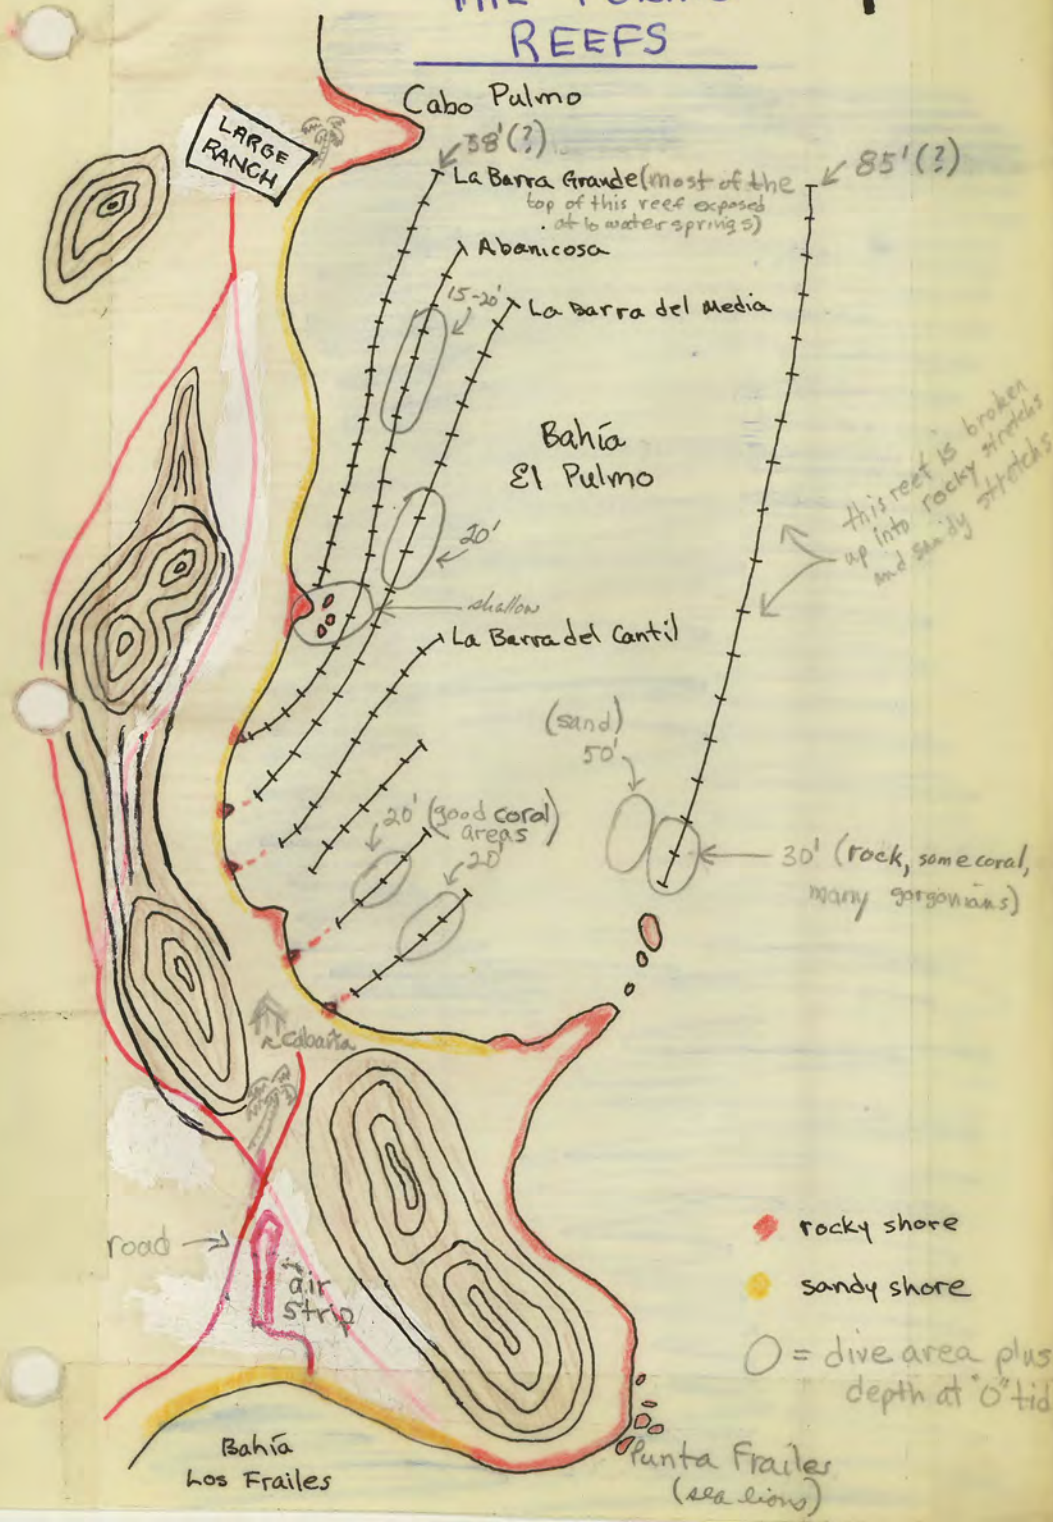 REEFS
Cabo Pulmo
LARGE
RANCH
38'(?)
85'(?)
La Barra Grande (most of the
top of this reef exposed
at lo water springs)
Abanicosa
15-20'
La Barra del Media
Bahía
El Pulmo
this reef is broken
up into rocky stretchs
and sandy stretchs
20'
shallow
La Barra del Cantil
(sand)
50'
20' (good coral)
areas
20'
30' (rock, some coral,
many gorgonians)
Cabaña
road
air
strip
rocky shore
sandy shore
O = dive area plus
depth at "O" tid
Bahía
Los Frailes
Punta Frailes
(sea lions)